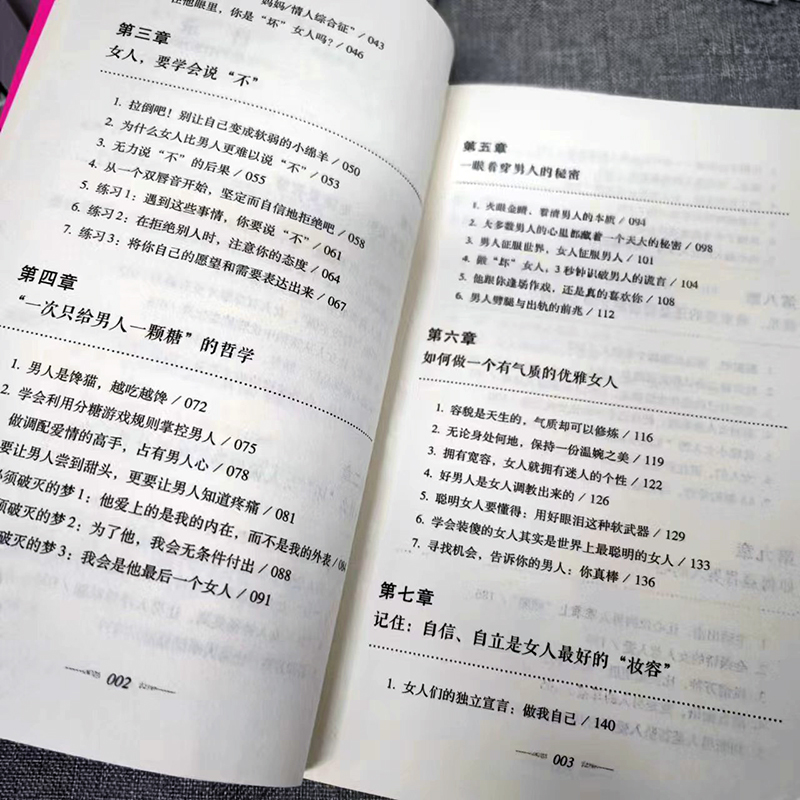 妈妈/情人综合征”/ 043
在他眼里，你是“坏”女人吗？/ 046
第三章
女人，要学会说“不”
1. 拉倒吧！别让自己变成软弱的小绵羊 / 050
2. 为什么女人比男人更难以说“不” / 053
3. 无力说“不”的后果 / 055
4. 从一个双唇音开始，坚定而自信地拒绝吧 / 058
5. 练习1：遇到这些事情，你要说“不” / 061
6. 练习2：在拒绝别人时，注意你的态度 / 064
7. 练习3：将你自己的愿望和需要表达出来 / 067
第四章
“一次只给男人一颗糖”的哲学
1. 男人是馋猫，越吃越馋 / 072
2. 学会利用分糖游戏规则掌控男人 / 075
做调配爱情的高手，占有男人心 / 078
要让男人尝到甜头，更要让男人知道疼痛 / 081
必须破灭的梦1：他爱上的是我的内在，而不是我的外表 / 084
须破灭的梦2：为了他，我会无条件付出 / 088
破灭的梦3：我会是他最后一个女人 / 091
002
第五章
一眼看穿男人的秘密
1. 火眼金睛，看清男人的本质 / 094
2. 大多数男人的心里都藏着一个天大的秘密 / 098
3. 男人征服世界，女人征服男人 / 101
4. 做“坏”女人，3秒钟识破男人的谎言 / 104
5. 他跟你逢场作戏，还是真的喜欢你 / 108
6. 男人劈腿与出轨的前兆 / 112
第六章
如何做一个有气质的优雅女人
1. 容貌是天生的，气质却可以修炼 / 116
2. 无论身处何地，保持一份温婉之美 / 119
3. 拥有宽容，女人就拥有迷人的个性 / 122
4. 好男人是女人调教出来的 / 126
5. 聪明女人要懂得：用好眼泪这种软武器 / 129
6. 学会装傻的女人其实是世界上最聪明的女人 / 133
7. 寻找机会，告诉你的男人：你真棒 / 136
第七章
记住：自信、自立是女人最好的“妆容”
1. 女人们的独立宣言：做我自己 / 140
003